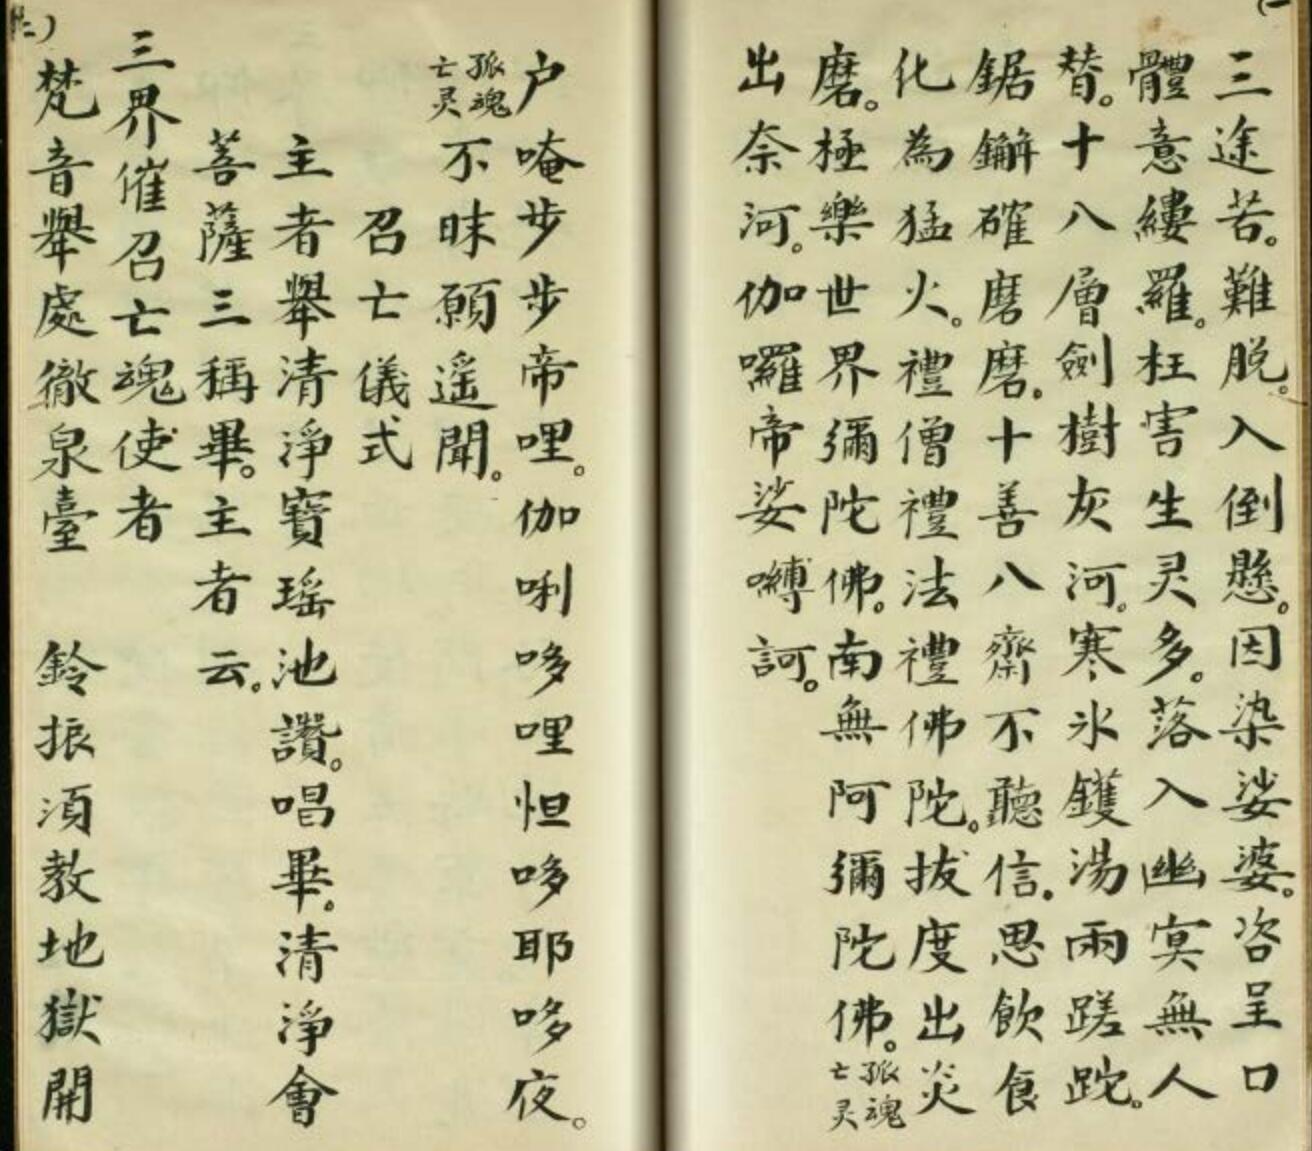 三途苦。難脱。入倒懸。因染娑婆。咨呈口
體意縷羅。枉害生灵多。落入幽冥無人
替。十八層劍樹灰河。寒氷鑊湯兩蹉跎。
鋸鐮確磨磨。十善八齋不聽信。思飲食
化為猛火。禮僧禮法禮佛陀。拔度出炎
磨。極樂世界彌陀佛。南無阿彌陀佛。孤魂亡灵
出奈河。伽囉帝娑嚩訶。
户唵步步帝哩。伽唎哆哩怛哆耶哆夜。
孤魂亡灵不昧願遥聞。
召亡儀式
主者舉清淨寶瑶池讚。唱畢。清淨會
菩薩三稱畢。主者云。
三界催召亡魂使者
梵音舉處徹泉臺　鈴振湏教地獄開